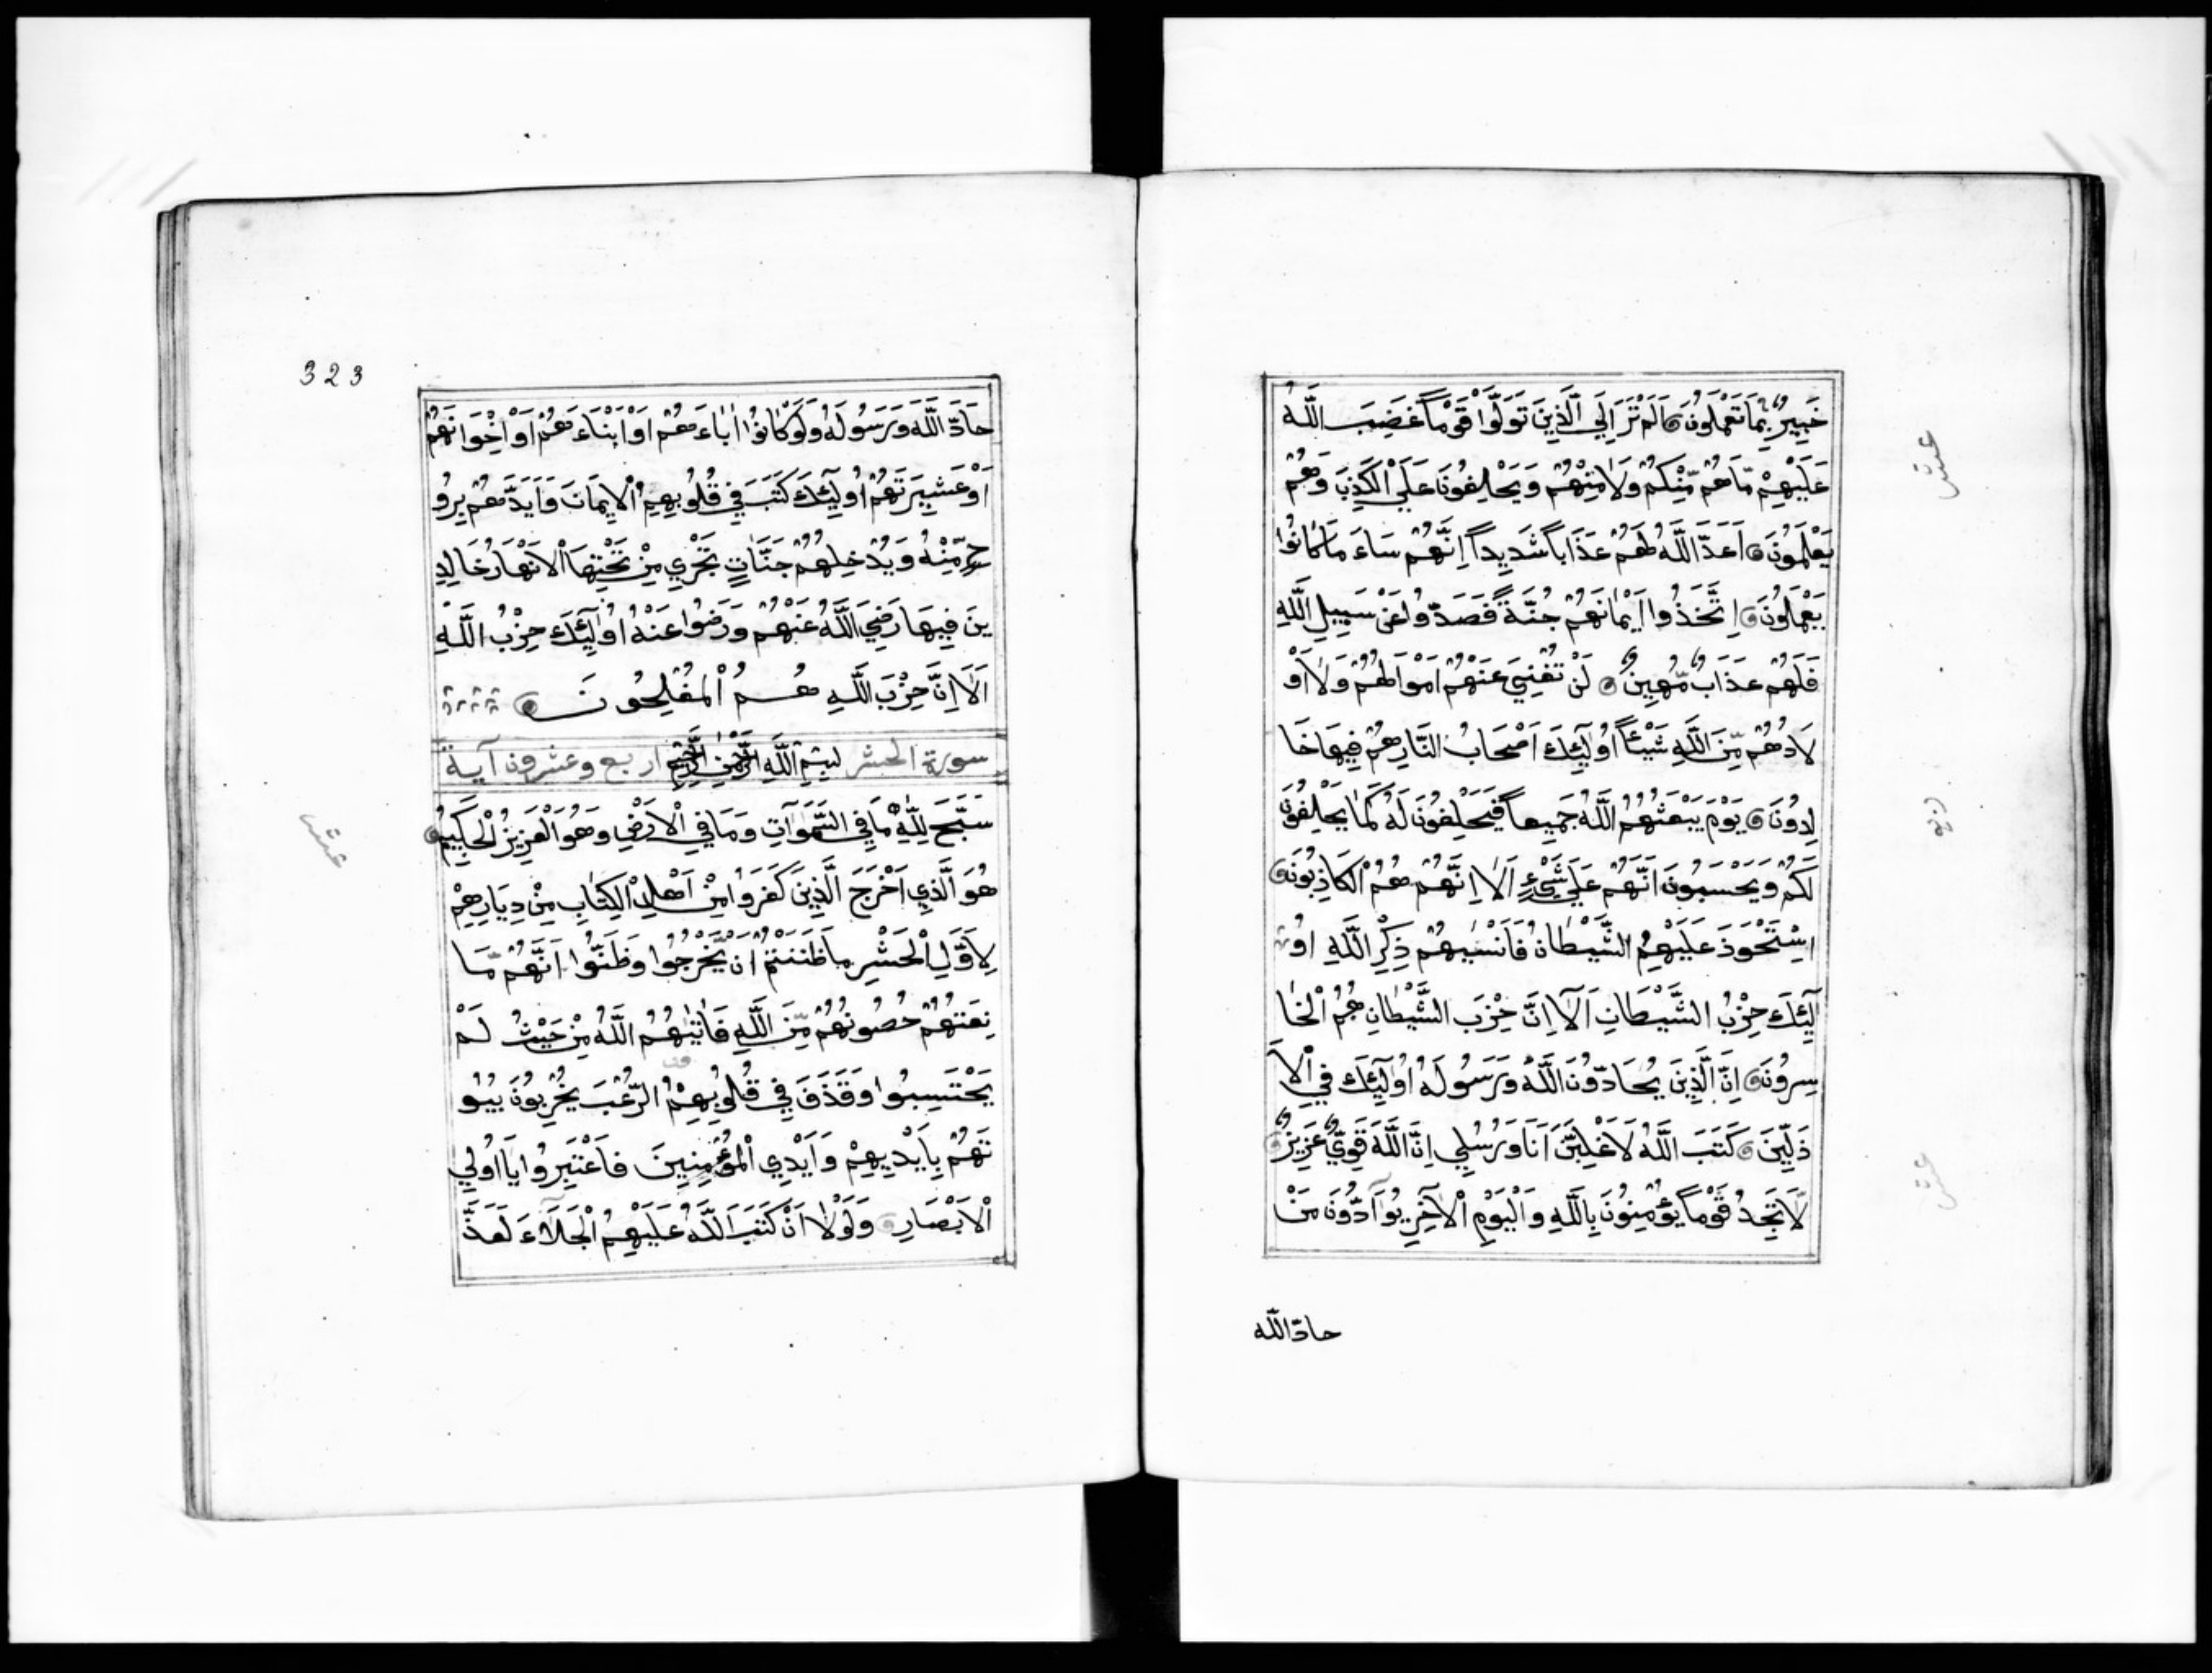 خَبِيرٌ بِمَا تَعْمَلُونَ اَلَمْ تَرَ اِلَي الَّذِينَ تَوَلَّوْا قَوْمًا غَضِبَ اللَّهُ
عَلَيْهِمْ مَّاهُمْ مِّنْكُمْ وَلَا مِنْهُمْ وَيَحْلِفُونَ عَلَي الْكَذِبِ وَهُمْ
يَعْلَمُونَ اَعَدَّ اللَّهُ لَهُمْ عَذَاباً شَدِيداً اِنَّهُمْ سَاءَ مَا كَانُوا
يَعْمَلُونَ اِتَّخَذُوا اَيْمَانَهُمْ جُنَّةً فَصَدُّوا عَنْ سَبِيلِ اللَّهِ
فَلَهُمْ عَذَابٌ مُّهِينٌ لَنْ تُغْنِيَ عَنْهُمْ اَمْوَالُهُمْ وَلَا اَوْ
لَادُهُمْ مِّنَ اللَّهِ شَيْئاً اُولَٰئِكَ اَصْحَابُ النَّارِ هُمْ فِيهَا خَا
لِدُونَ يَوْمَ يَبْعَثُهُمُ اللَّهُ جَمِيعاً فَيَحْلِفُونَ لَهُ كَمَا يَحْلِفُونَ
لَكُمْ وَيَحْسَبُونَ اَنَّهُمْ عَلَي شَيْءٍ اَلَا اِنَّهُمْ هُمُ الْكَاذِبُونَ
اِسْتَحْوَذَ عَلَيْهِمُ الشَّيْطَانُ فَاَنْسٰيهُمْ ذِكْرَ اللَّهِ اُو
لَٰئِكَ حِزْبُ الشَّيْطَانِ اَلَا اِنَّ حِزْبَ الشَّيْطَانِ هُمُ الْخَا
سِرُونَ اِنَّ الَّذِينَ يُحَادُّونَ اللَّهَ وَرَسُولَهُ اُولَٰئِكَ فِي الْاَ
ذَلِّينَ كَتَبَ اللَّهُ لَاَغْلِبَنَّ اَنَا وَرُسُلِي اِنَّ اللَّهَ قَوِيٌّ عَزِيزٌ
لَا تَجِدُ قَوْمًا يُؤْمِنُونَ بِاللَّهِ وَالْيَوْمِ الْاٰخِرِ يُوَآدُّونَ مَنْ
حادّ اللّه
عشر
عشر
323
حَادَّ اللَّهَ وَرَسُولَهُ وَلَوْ كَانُوا اٰبَاءَهُمْ اَوْ اَبْنَاءَهُمْ اَوْ اِخْوَانَهُمْ
اَوْ عَشِيرَتَهُمْ اُولَٰئِكَ كَتَبَ فِي قُلُوبِهِمُ الْاِيمَانَ وَاَيَّدَهُمْ بِرُو
حٍ مِّنْهُ وَيُدْخِلُهُمْ جَنَّاتٍ تَجْرِي مِنْ تَحْتِهَا الْاَنْهَارُ خَالِدِ
ينَ فِيهَا رَضِيَ اللَّهُ عَنْهُمْ وَرَضُوا عَنْهُ اُولَٰئِكَ حِزْبُ اللَّهِ
اَلَا اِنَّ حِزْبَ اللَّهِ هُمُ الْمُفْلِحُونَ
سورة الحشر بِسْمِ اللَّهِ الرَّحْمٰنِ الرَّحِيمِ اربع وعشرون آية
سَبَّحَ لِلَّهِ مَا فِي السَّمٰوَاتِ وَمَا فِي الْاَرْضِ وَهُوَ الْعَزِيزُ الْحَكِيمُ
هُوَ الَّذِي اَخْرَجَ الَّذِينَ كَفَرُوا مِنْ اَهْلِ الْكِتَابِ مِنْ دِيَارِهِمْ
لِاَوَّلِ الْحَشْرِ مَا ظَنَنْتُمْ اَنْ يَّخْرُجُوا وَظَنُّوا اَنَّهُمْ مَّا
نِعَتُهُمْ حُصُونُهُمْ مِّنَ اللَّهِ فَاَتٰيهُمُ اللَّهُ مِنْ حَيْثُ لَمْ
يَحْتَسِبُوا وَقَذَفَ فِي قُلُوبِهِمُ الرُّعْبَ يُخْرِبُونَ بُيُو
تَهُمْ بِاَيْدِيهِمْ وَاَيْدِي الْمُؤْمِنِينَ فَاعْتَبِرُوا يَا اُولِي
الْاَبْصَارِ وَلَوْلَا اَنْ كَتَبَ اللَّهُ عَلَيْهِمُ الْجَلَاءَ لَعَذَّ
عشر